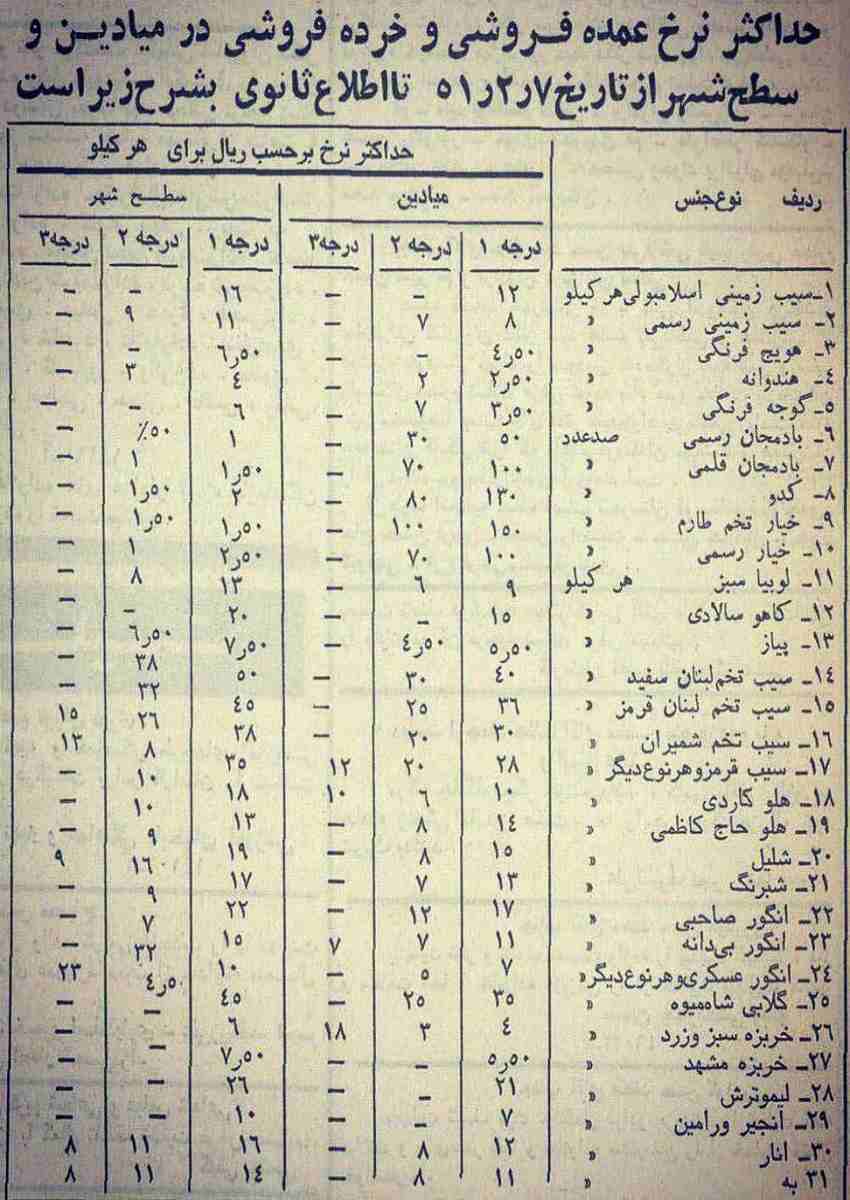 حداکثر نرخ عمده فروشی و خرده فروشی در میادین و
سطح شهر از تاریخ ۷ر۲ر۵۱ تا اطلاع ثانوی بشرح زیر است
حداکثر نرخ برحسب ریال برای هر کیلو
ردیف نوع جنس میادین سطح شهر
درجه ۱ درجه ۲ درجه ۳ درجه ۱ درجه ۲ درجه ۳
۱ـ سیب زمینی اسلامبولی هر کیلو ۱۲ – – ۱۶ – –
۲ـ سیب زمینی رسمی » ۸ ۷ – ۱۱ ۹ –
۳ـ هویج فرنگی » ۵۰ر۴ – – ۵۰ر۶ – –
۴ـ هندوانه » ۵۰ر۲ ۲ – ۴ ۳ –
۵ـ گوجه فرنگی » ۵۰ر۳ ۷ – ۶ – –
۶ـ بادمجان رسمی صدعدد ۵۰ ۳۰ – ۱ ۵۰٪ –
۷ـ بادمجان قلمی » ۱۰۰ ۷۰ – ۵۰ر۱ ۱ –
۸ـ کدو » ۱۳۰ ۸۰ – ۲ ۵۰ر۱ –
۹ـ خیار تخم طارم » ۱۵۰ ۱۰۰ – ۵۰ر۱ ۵۰ر۱ –
۱۰ـ خیار رسمی » ۱۰۰ ۷۰ – ۵۰ر۲ ۱ –
۱۱ـ لوبیا سبز هر کیلو ۹ ۶ – ۱۳ ۸ –
۱۲ـ کاهو سالادی » ۱۵ – – ۲۰ – –
۱۳ـ پیاز » ۵۰ر۵ ۵۰ر۴ – ۵۰ر۷ ۵۰ر۶ –
۱۴ـ سیب تخم لبنان سفید » ۴۰ ۳۰ – ۵۰ ۳۸ –
۱۵ـ سیب تخم لبنان قرمز » ۳۶ ۲۵ – ۴۵ ۳۲ –
۱۶ـ سیب تخم شمیران » ۳۰ ۲۰ – ۳۸ ۲۶ ۱۵
۱۷ـ سیب قرمز و هر نوع دیگر » ۲۸ ۲۰ ۱۲ ۳۵ ۸ ۱۳
۱۸ـ هلو کاردی » ۱۰ ۶ ۱۰ ۱۸ ۱۰ –
۱۹ـ هلو حاج کاظمی » ۱۴ ۸ – ۱۳ ۱۰ –
۲۰ـ شلیل » ۱۵ ۸ – ۱۹ ۹ –
۲۱ـ شبرنگ » ۱۳ ۷ – ۱۷ ۱۶ ۹
۲۲ـ انگور صاحبی » ۱۷ ۱۲ – ۲۲ ۹ –
۲۳ـ انگور بی‌دانه » ۱۱ ۷ ۷ ۱۵ ۷ –
۲۴ـ انگور عسکری و هر نوع دیگر » ۷ ۵ – ۱۰ ۳۲ ۲۳
۲۵ـ گلابی شاه‌میوه » ۳۵ ۲۵ – ۴۵ ۵۰ر۴ –
۲۶ـ خربزه سبز و زرد » ۴ ۳ ۱۸ ۶ – –
۲۷ـ خربزه مشهد » ۵۰ر۵ – ۵۰ر۷ – –
۲۸ـ لیموترش » ۲۱ – ۲۶ – –
۲۹ـ انجیر ورامین » ۷ – ۱۰ – –
۳۰ـ انار » ۱۲ ۸ – ۱۶ ۱۱ ۸
۳۱ به » ۱۱ ۸ – ۱۴ ۱۱ ۸